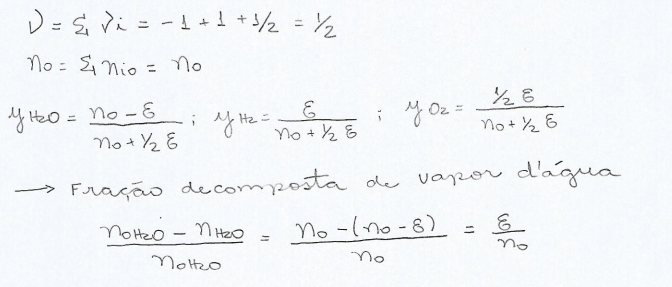 ν = Σ νi = -1 + 1 + 1/2 = 1/2
no = Σ nio = no
yH2O = (no - ε)/(no + 1/2 ε) ; yH2 = ε/(no + 1/2 ε) ; yO2 = (1/2 ε)/(no + 1/2 ε)
→ Fração decomposta de vapor d'água
(noH2O - nH2O)/noH2O = (no - (no - ε))/no = ε/no